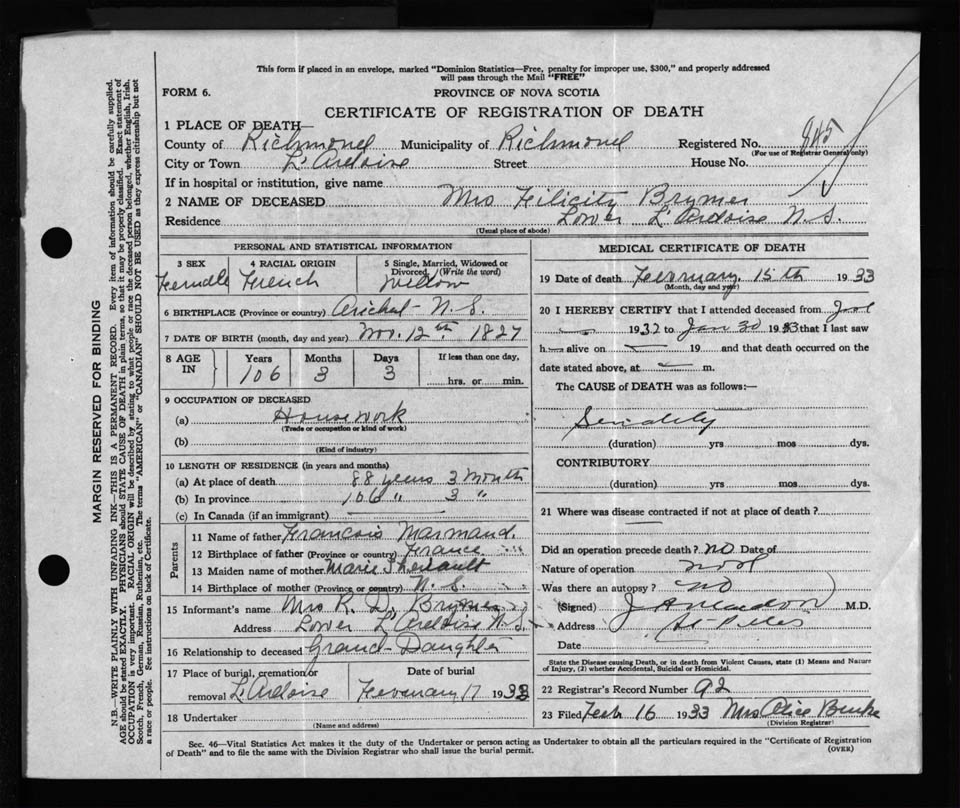 This form if placed in an envelope, marked "Dominion Statistics—Free, penalty for improper use, $300," and properly addressed
will pass through the Mail "FREE"
FORM 6.
PROVINCE OF NOVA SCOTIA
CERTIFICATE OF REGISTRATION OF DEATH
1 PLACE OF DEATH—
County of Richmond Municipality of Richmond Registered No.
(For use of Registrar General only)
City or Town L'Ardoise Street House No.
If in hospital or institution, give name
2 NAME OF DECEASED Mrs Filicity Brymer
Residence Lower L'Ardoise N.S.
(Usual place of abode)
PERSONAL AND STATISTICAL INFORMATION
3 SEX 4 RACIAL ORIGIN 5 Single, Married, Widowed or
Divorced (Write the word)
Female French Widow
6 BIRTHPLACE (Province or country) Arichat - N.S.
7 DATE OF BIRTH (month, day and year) Nov. 12th 1827
8 AGE IN Years Months Days If less than one day,
106 3 3 hrs. or min.
9 OCCUPATION OF DECEASED
(a) Housework
(Trade or occupation or kind of work)
(b)
(Kind of industry)
10 LENGTH OF RESIDENCE (in years and months)
(a) At place of death 88 years 3 Month
(b) In province 106 " 3 "
(c) In Canada (if an immigrant)
Parents
11 Name of father Francois Marmaud.
12 Birthplace of father (Province or country) France
13 Maiden name of mother Marie
14 Birthplace of mother (Province or country) N.S.
15 Informant's name Mrs R. D. Brymer
Address Lower L'Ardoise N.S.
16 Relationship to deceased Grand-Daughter
17 Place of burial, cremation or Date of burial
removal L'Ardoise February 17 1933
18 Undertaker
(Name and address)
MEDICAL CERTIFICATE OF DEATH
19 Date of death February 15th 1933
(Month, day and year)
20 I HEREBY CERTIFY that I attended deceased from
1932 to Jan 30 1933 that I last saw
h alive on 19 and that death occurred on the
date stated above, at m.
The CAUSE of DEATH was as follows:—
(duration) yrs mos dys.
CONTRIBUTORY
(duration) yrs mos dys.
21 Where was disease contracted if not at place of death?
Did an operation precede death? no Date of
Nature of operation
Was there an autopsy? no
(Signed) M.D.
Address
Date
State the Disease causing Death, or in death from Violent Causes, state (1) Means and Nature
of Injury, (2) whether Accidental, Suicidal or Homicidal.
22 Registrar's Record Number 92
23 Filed Feb 16 1933 Mrs Alice Burke
(Division Registrar)
Sec. 46—Vital Statistics Act makes it the duty of the Undertaker or person acting as Undertaker to obtain all the particulars required in the "Certificate of Registration
of Death" and to file the same with the Division Registrar who shall issue the burial permit.
(OVER)
MARGIN RESERVED FOR BINDING
N.B.—WRITE PLAINLY WITH UNFADING INK—THIS IS A PERMANENT RECORD. Every item of information should be carefully supplied.
AGE should be stated EXACTLY. PHYSICIANS should STATE CAUSE OF DEATH in plain terms, so that it may be properly classified. Exact statement of
OCCUPATION is very important. RACIAL ORIGIN will be described by stating to what people or race the deceased person belonged, whether English, Irish,
Scotch, French, German, Russian, Ruthenian, etc. The terms "AMERICAN" or "CANADIAN" SHOULD NOT BE USED as they express citizenship but not
a race or people. See instructions on back of Certificate.